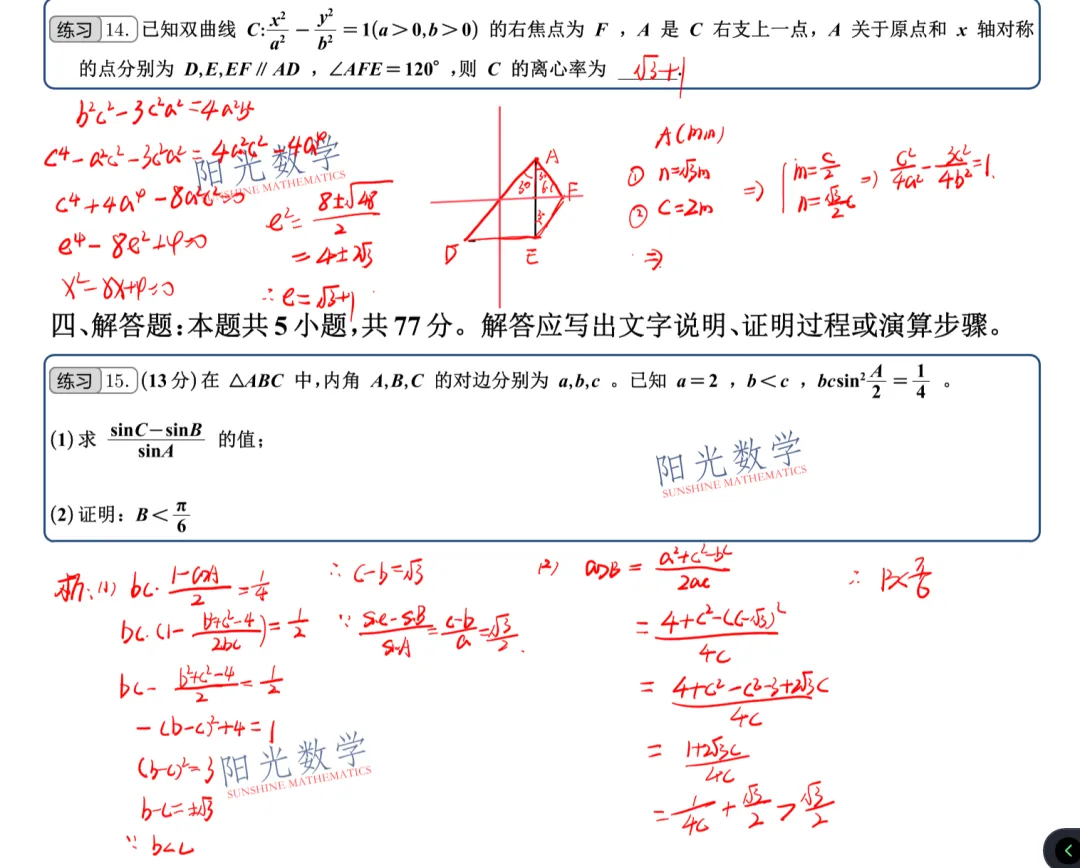 练习 14. 已知双曲线 C: x²/a² − y²/b² = 1(a>0,b>0) 的右焦点为 F ，A 是 C 右支上一点，A 关于原点和 x 轴对称
的点分别为 D,E,EF∥AD ，∠AFE=120° ,则 C 的离心率为 √3+1.
b²c²-3c²a²=4a²b²
c⁴-a²c²-3c²a²=4a²c²-4a⁴
c⁴+4a⁴-8a²c²=0
e⁴-8e²+4=0
x²-8x+4=0
e²=(8±√48)/2
=4±2√3
∴e=√3+1
A
30
60
F
D
E
A(m,n)
① n=√3m
② c=2m
⇒
⇒ { m=c/2
n=√3/2 c
⇒ c²/4a² - 3c²/4b² =1.
阳光数学
SUNSHINE MATHEMATICS
四、解答题:本题共5小题,共77分。解答应写出文字说明、证明过程或演算步骤。
练习 15. (13分)在 △ABC 中,内角 A,B,C 的对边分别为 a,b,c 。已知 a=2 ，b<c ，bcsin²A/2=1/4 。
(1)求 (sinC−sinB)/sinA 的值;
(2)证明: B<π/6
阳光数学
SUNSHINE MATHEMATICS
析:(1) bc·(1-cosA)/2=1/4
bc·(1-(b²+c²-4)/2bc)=1/2
bc-(b²+c²-4)/2=1/2
-(b-c)²+4=1
(b-c)²=3
b-c=±√3
∵b<c
∴c-b=√3
∵(sinC-sinB)/sinA=(c-b)/a=√3/2.
(2) cosB=(a²+c²-b²)/2ac
=(4+c²-(c-√3)²)/4c
=(4+c²-c²-3+2√3c)/4c
=(1+2√3c)/4c
=1/4c+√3/2>√3/2
∴B<π/6
阳光数学
SUNSHINE MATHEMATICS